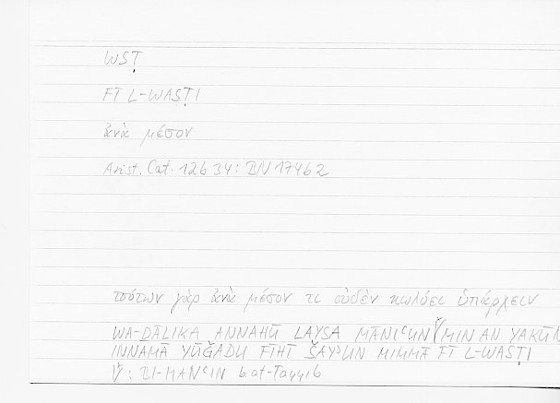 WSṬ
FĪ L-WASṬI
ἀνὰ μέσον
Arist. Cat. 12b34: BN 174b2
τούτων γὰρ ἀνὰ μέσον τι οὐδὲν κωλύει ὑπάρχειν
WA-ḎĀLIKA ANNAHŪ LAYSA MĀNIʿUN MIN AN YAKŪN
INNAMĀ YŪǦADU FĪHI ŠAYʾUN MIMMĀ FĪ L-WASṬI
: BI-MANʿIN b. aṭ-Ṭayyib